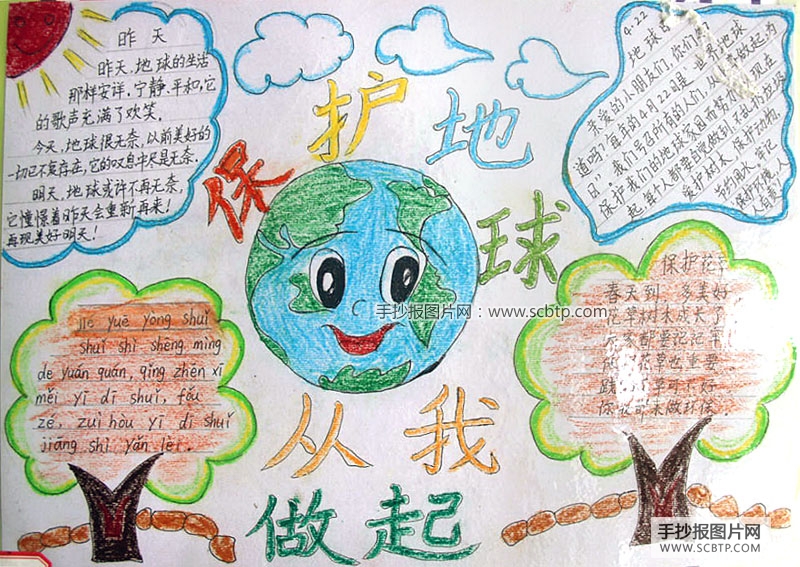 昨天
昨天,地球的生活
那样安详,宁静、平和,它
的歌声充满了欢笑。
今天,地球很无奈,以前美好的
一切已不复存在,它的叹息中尽是无奈.
明天,地球或许不再无奈,
它憧憬着昨天会重新再来!
再现美好明天!
保护地球
4.22
地球日
亲爱的小朋友们,你们
道吗?每年的4月22日是 世界地球
日"。我们号召所有的人们,从 做起,为
保护我们的地球家园而努力 现在
起,每个人都要自觉做到:不乱扔垃圾
爱护树木,保护动物,
节约用水 牢记
保护环境,人
人有责
手抄报图片网:www.scbtp.com
jié yuē yòng shuǐ
shuǐ shì shēng mìng
de yuán quán, qǐng zhēn xī
měi yī dī shuǐ, fǒu
zé, zuì hòu yī dī shuǐ
jiāng shì yǎn lèi.
保护花草
春天到 多美好
花草树木成长了
大家都要记记牢
花草也重要
草可不好
你我 来做环保.
从我
做起
手抄报图片网
WWW.SCBTP.COM